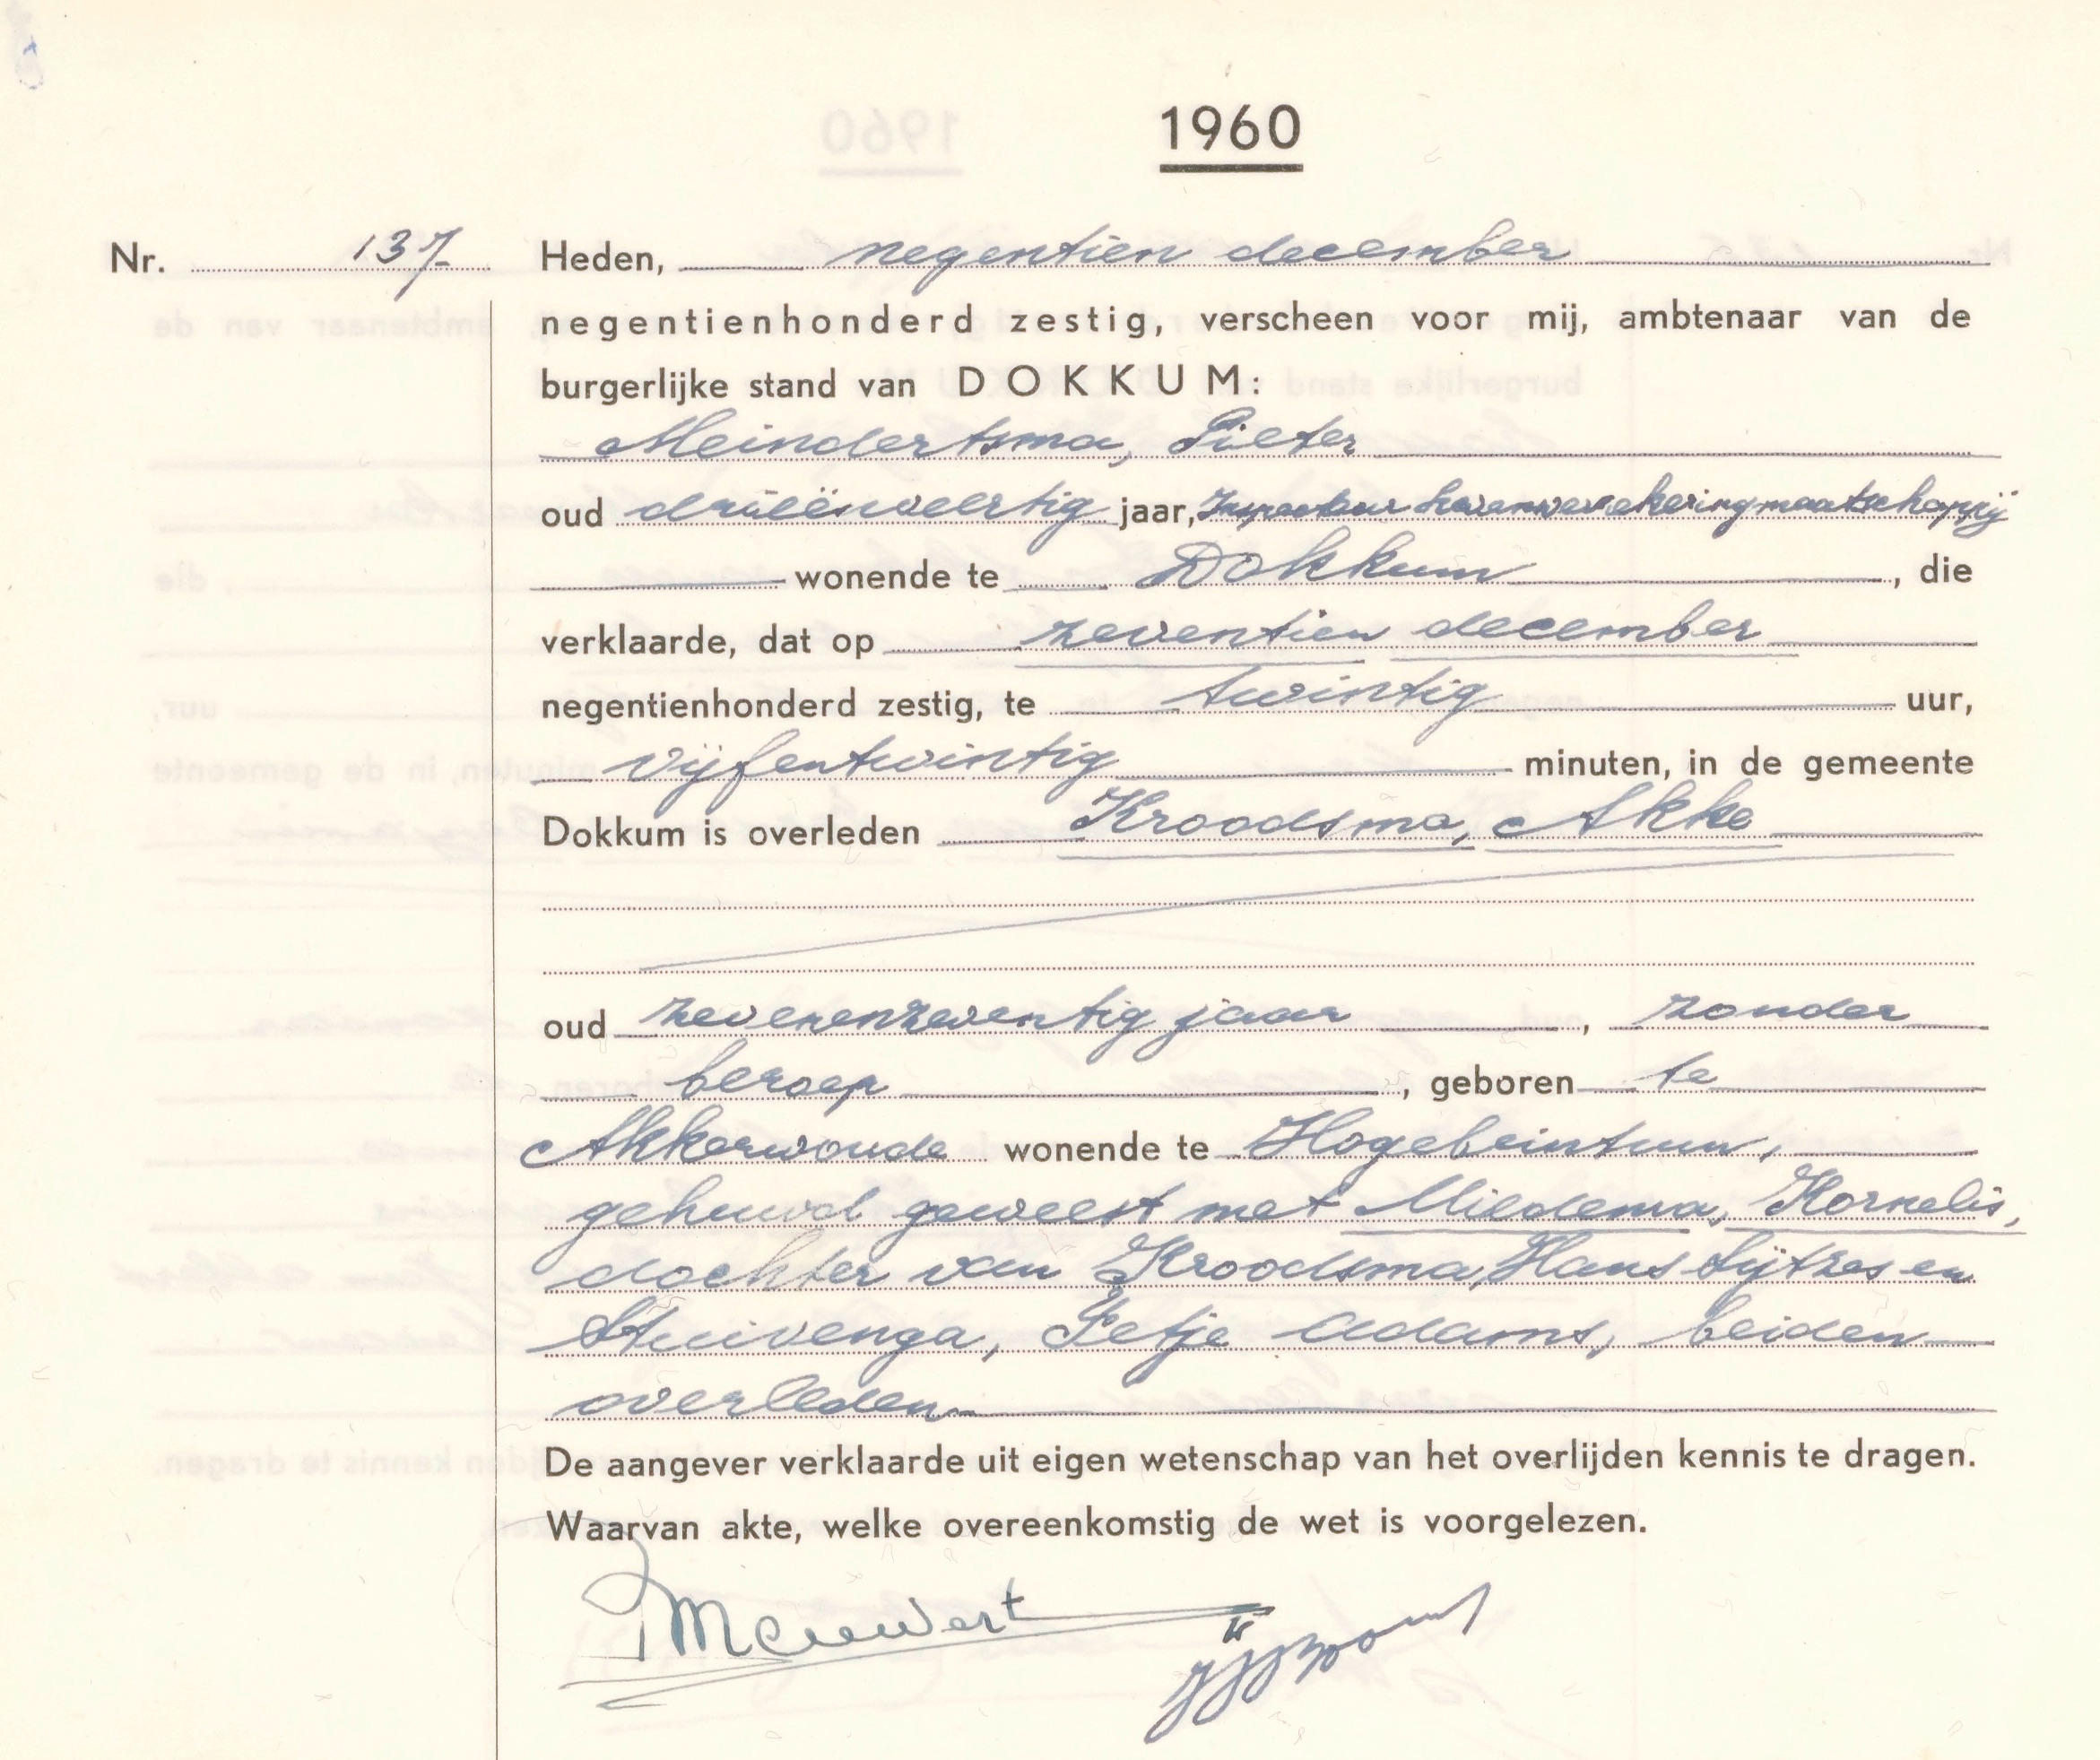 1960
Nr. 137 Heden, negentien december
negentienhonderd zestig, verscheen voor mij, ambtenaar van de
burgerlijke stand van DOKKUM:
Meindertsma, Pieter
oud drieënveertig jaar, Inspecteur levensverzekeringmaatschappij
wonende te Dokkum, die
verklaarde, dat op zeventien december
negentienhonderd zestig, te twintig uur,
vijfentwintig minuten, in de gemeente
Dokkum is overleden Kroodsma, Akke
oud zevenenzeventig jaar, zonder
beroep, geboren te
Akkerwoude wonende te Hogebeintum,
gehuwd geweest met Miedema, Kornelis,
dochter van Kroodsma, Hans Sÿtzes en
Stuivenga, Petje Adams, beiden
overleden
De aangever verklaarde uit eigen wetenschap van het overlijden kennis te dragen.
Waarvan akte, welke overeenkomstig de wet is voorgelezen.